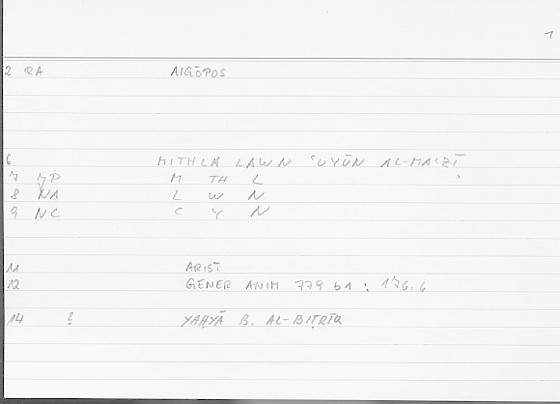 1
2 RA AIGŌPOS
6 MITHLA LAWN ʿUYŪN AL-MAʿZĪ
7 JP M TH L
8 NA L W N
9 NC C Y N
11 ARIST
12 GENER ANIM 779 b1 : 176.6
14 ? YAḤYĀ B. AL-BIṬRĪQ